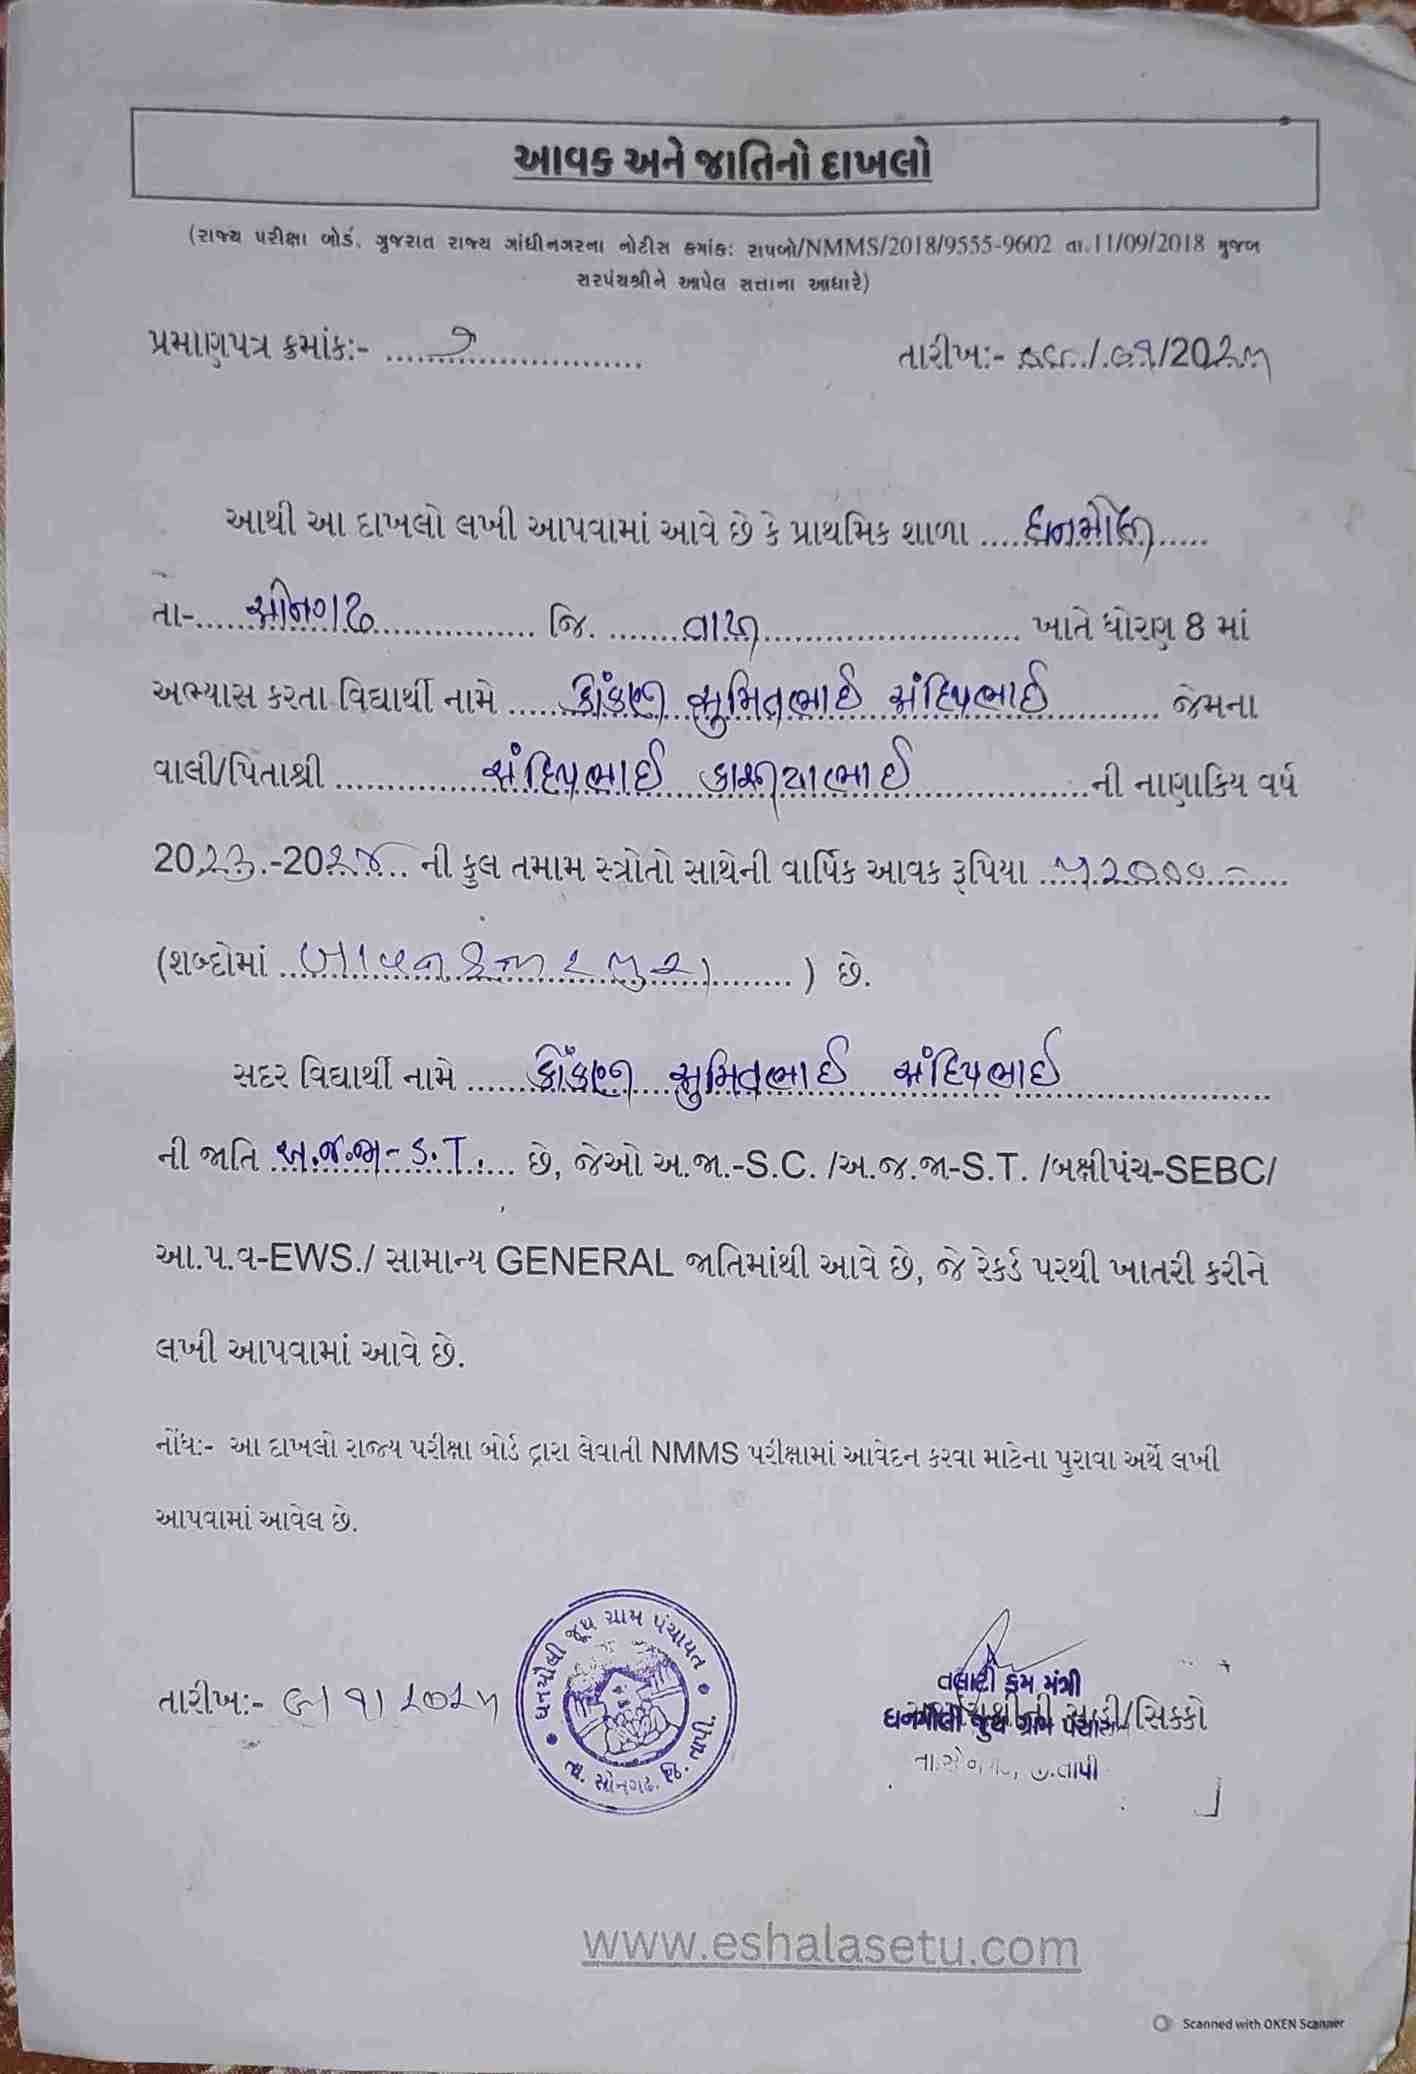 આવક અને જાતિનો દાખલો
(રાજ્ય પરીક્ષા બોર્ડ, ગુજરાત રાજ્ય ગાંધીનગરના નોટીસ ક્રમાંક: રાપબો/NMMS/2018/9555-9602 તા.11/09/2018 મુજબ
સરપંચશ્રીને આપેલ સત્તાના આધારે)
પ્રમાણપત્ર ક્રમાંક:- ........................ તારીખ:- /૦૧/20૨૫
આથી આ દાખલો લખી આપવામાં આવે છે કે પ્રાથમિક શાળા .....ઘનમૌલી.....
તા-.....સોનગઢ................ જિ. .......તાપી........................ ખાતે ધોરણ 8 માં
અભ્યાસ કરતા વિદ્યાર્થી નામે ......કોંકણી સુમિતભાઈ સંદિપભાઈ.......... જેમના
વાલી/પિતાશ્રી .............સંદિપભાઈ ...............ની નાણાકિય વર્ષ
20૨૩.-20૨૪... ની કુલ તમામ સ્ત્રોતો સાથેની વાર્ષિક આવક રૂપિયા ...૫૨૦૦૦.....
(શબ્દોમાં ...બાવન હજાર પુરા.......) છે.
સદર વિદ્યાર્થી નામે ......કોંકણી સુમિતભાઈ સંદિપભાઈ..................
ની જાતિ અ.જ.જા-S.T..... છે, જેઓ અ.જા.-S.C. /અ.જ.જા-S.T. /બક્ષીપંચ-SEBC/
આ.પ.વ-EWS./ સામાન્ય GENERAL જાતિમાંથી આવે છે, જે રેકર્ડ પરથી ખાતરી કરીને
લખી આપવામાં આવે છે.
નોંધ:- આ દાખલો રાજ્ય પરીક્ષા બોર્ડ દ્વારા લેવાતી NMMS પરીક્ષામાં આવેદન કરવા માટેના પુરાવા અર્થે લખી
આપવામાં આવેલ છે.
તારીખ:- ૯/૧/૨૦૨૫
ઘનમૌલી જૂથ ગ્રામ પંચાયત
તા. સોનગઢ. જિ. તાપી.
તલાટી કમ મંત્રી
ઘનમૌલી જુથ ગ્રામ પંચાયત
/સિક્કો
તા.સોનગઢ, જી.તાપી
www.eshalasetu.com
Scanned with OKEN Scanner